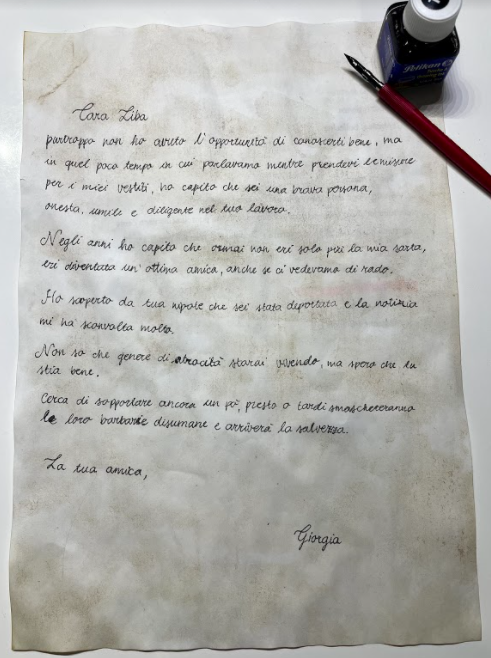 Pelikan
Cara Liba
purtroppo non ho avuto l'opportunità di conoscerti bene, ma
in quel poco tempo in cui parlavamo mentre prendevi le misure
per i miei vestiti, ho capito che sei una brava persona,
onesta, umile e diligente nel tuo lavoro.
Negli anni ho capito che ormai non eri solo più la mia sarta,
eri diventata un'ottima amica, anche se ci vedevamo di rado.
Ho scoperto da tua nipote che sei stata deportata e la notizia
mi ha sconvolta molto.
Non so che genere di atrocità starai vivendo, ma spero che tu
stia bene.
Cerca di sopportare ancora un pò, presto o tardi smaschereranno
le loro barbarie disumane e arriverà la salvezza.
La tua amica,
Giorgia